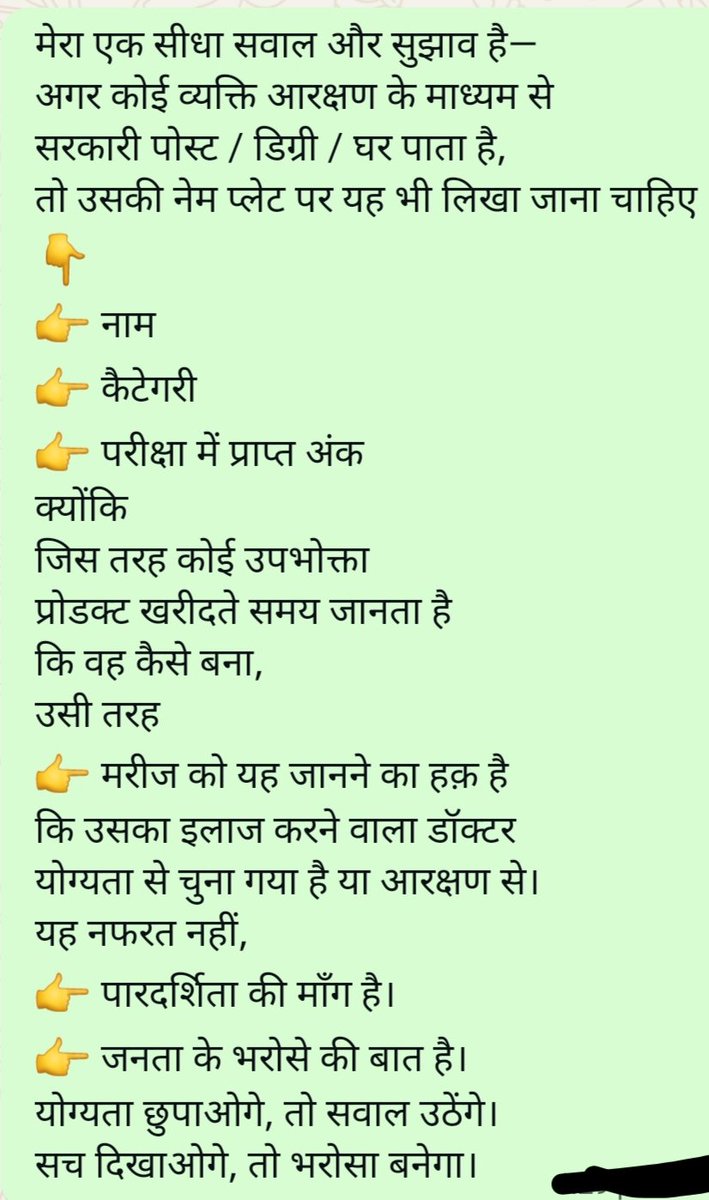 मेरा एक सीधा सवाल और सुझाव है—
अगर कोई व्यक्ति आरक्षण के माध्यम से
सरकारी पोस्ट / डिग्री / घर पाता है,
तो उसकी नेम प्लेट पर यह भी लिखा जाना चाहिए
👇
👉 नाम
👉 कैटेगरी
👉 परीक्षा में प्राप्त अंक
क्योंकि
जिस तरह कोई उपभोक्ता
प्रोडक्ट खरीदते समय जानता है
कि वह कैसे बना,
उसी तरह
👉 मरीज को यह जानने का हक़ है
कि उसका इलाज करने वाला डॉक्टर
योग्यता से चुना गया है या आरक्षण से।
यह नफरत नहीं,
👉 पारदर्शिता की माँग है।
👉 जनता के भरोसे की बात है।
योग्यता छुपाओगे, तो सवाल उठेंगे।
सच दिखाओगे, तो भरोसा बनेगा।